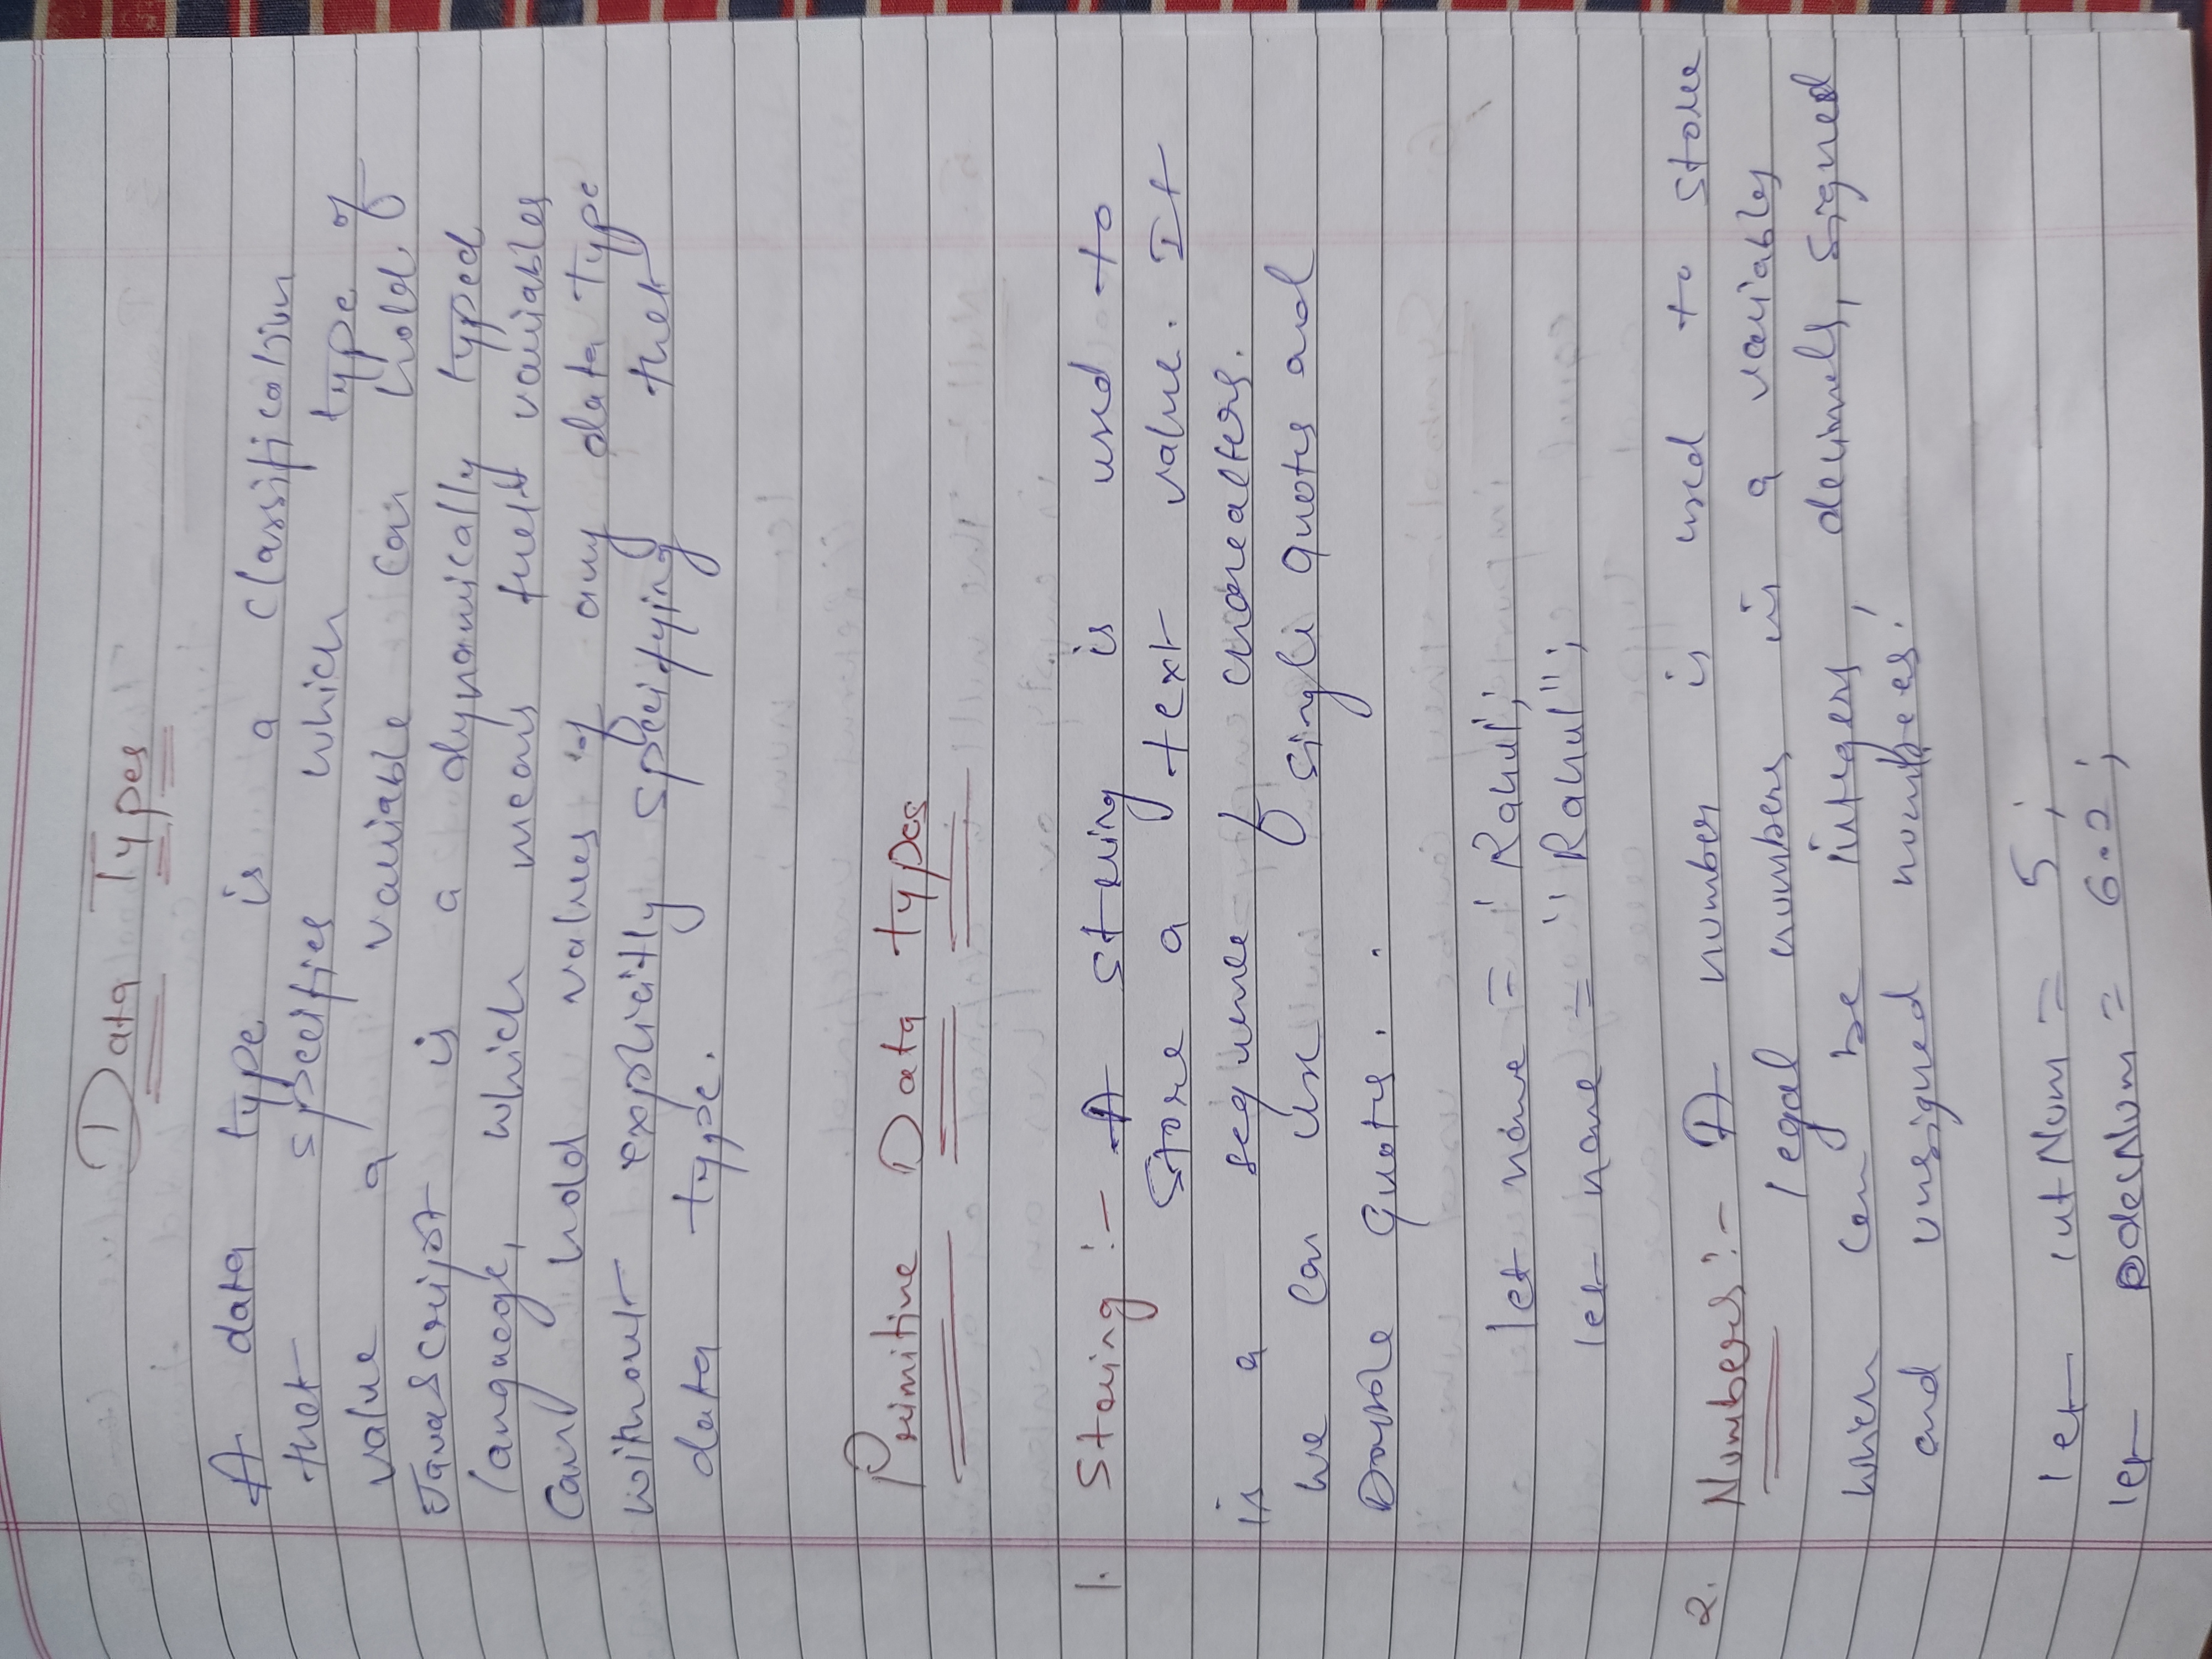 Data Types
A data type is a classification
that specifies which type of
value a variable can hold.
JavaScript is a dynamically typed
language, which means that variables
can hold values of any data type
without explicitly specifying that
data type.
Primitive Data types
1. String :- A string is used to
store a text value. It
is a sequence of
we can use single quotes and
Double quotes.
let name = 'Rahul';
let name = "Rahul";
2. Numbers :- A number is used to store
legal numbers in a variables
which can be integers, decimals, signed
and unsigned numbers.
let intNum = 5;
let decNum = 6.2;